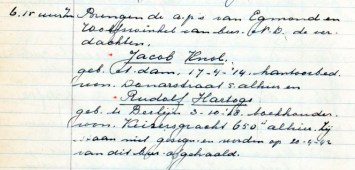 6.15 uur Brengen de a.p.s van Egmond en
van bur. N.D. de ver
dachten,
Jacob Knob.
geb. A'dam, 17-4-'14. kantoorbed
won. Donarstraat 5. alhier en
Rudolf Hartogs
geb. te Berlijn 3-10-'18. boekhouder
won. Keizersgracht 650" alhier. Zij
niet en worden op 20-5-'42
van dit bur. afgehaald.